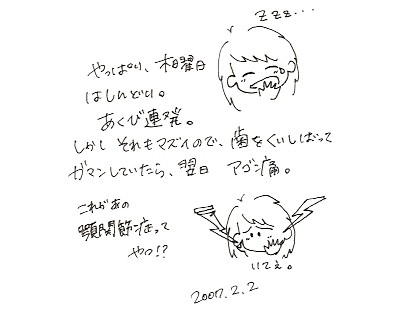 zzz...
やっぱり、木曜日
はしんどい。
あくび連発。
しかし それもマズイので、歯をくいしばって
ガマンしていたら、翌日 アゴン痛。
これがあの
顎関節症って
やつ!?
いてぇ。
2007.2.2